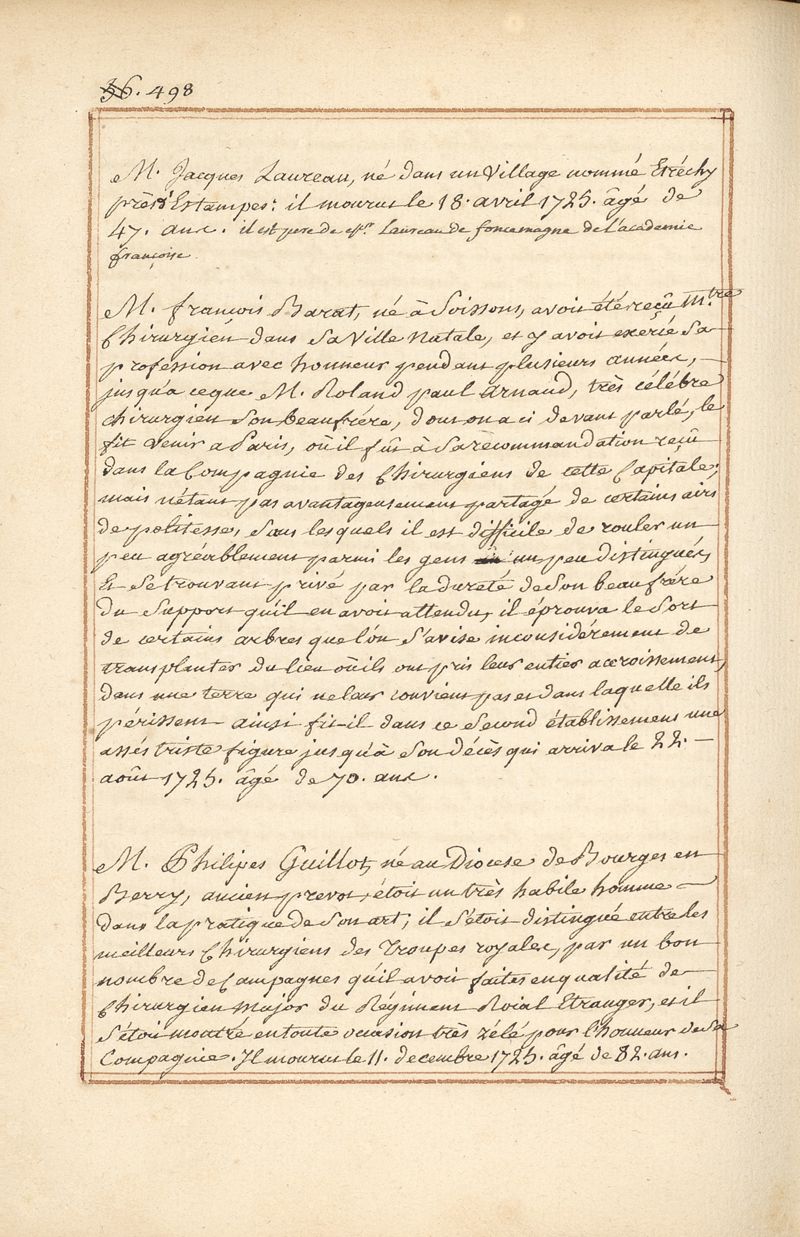 36. 498
M. Jacques Laureau, né dans un Village nommé Etréchy
près d'Estampes: il mourut le 18. avril 1725. âgé de
47. ans. il est pere de Mr. Laureau de foncemagne de l'academie
françoise.
M. françois Barat, né à Soissons, avoit été reçû Mtre
Chirurgién dans sa Ville Natale, et y avoit exercé sa
proféssion avec honneur pendant plusieurs années,
jusqu'a ceque M. Roland paul arnaud, très célébre
chirurgién son beaufrére, dont on a ci devant parlé, le
fit venir a Paris, où il fût à sa recommandation reçû
dans la Compagnie des Chirurgiens de cette Capitale;
mais n'étant pas avantageusement partagé de certains airs
de politesse, sans lesquels il est difficile de rouler un
peu agréablement parmi les gens un peu distingués,
Et se trouvant privé par la dureté de son beaufrére
du support qu'il en avoit attendu, il éprouva le sort
de certains arbres que l'on s'avise inconsidérement de
transplanter du lieu où ils ont pris leur entier accroissement,
dans une terre qui ne leur convient pas et dans laquelle ils
périssent ainsi fit-il dans ce second établissement une
assés triste figure jusqu'à son décès qui arriva le 22.
août 1725. âgé de 70. ans.
M. Philipes Guillot, né au Diocese de Bourges en
Berry, ancien prevot, étoit un très habile homme
dans la pratique de son art; il s'étoit distingué entre les
meilleurs Chirurgiens des Troupes royales, par un bon
nombre de Campagnes qu'il avoit faites en qualité de
Chirurgien Major du Régiment Roial Etranger, et il
s'étoit montré en toute occasion très zélé pour l'honneur de sa
Compagnie. Il mourut le 11. decembre 1725. âgé de 82. ans.